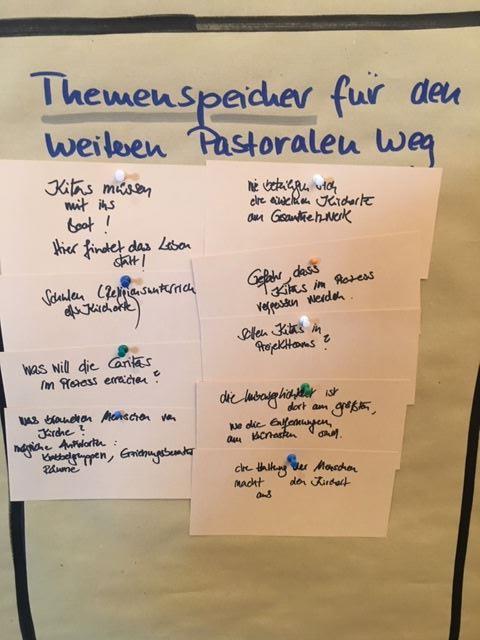 Themenspeicher für den
weiteren Pastoralen Weg
Kitas müssen
mit ins
Boot!
Hier findet das Leben
statt!
Schulen (Religionsunterricht
als Kirchorte)
Was will die Caritas
im Prozess erreichen?
Was brauchen Menschen von
Kirche?
mögliche Antworten:
Krabbelgruppen, Erziehungsberater
Räume
Wie beteiligen sich
die einzelnen Kirchorte
am Gesamtnetzwerk
Gefahr, dass
Kitas im Prozess
vergessen werden.
Sollen Kitas in
Projektteams?
die Unbeweglichkeit ist
dort am größten,
wo die Entfernungen
am kürzesten sind.
die Haltung der Menschen
macht den Kirchort
aus